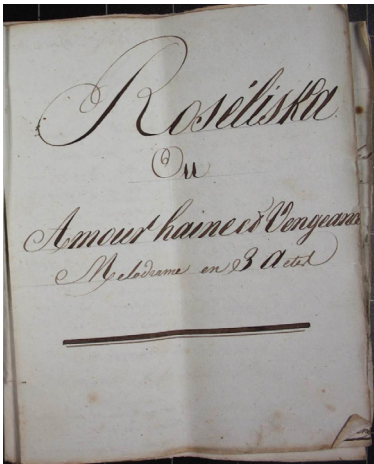 Roséliska
Ou
Amour haine et Vengeance
Melodrame en 3 Actes